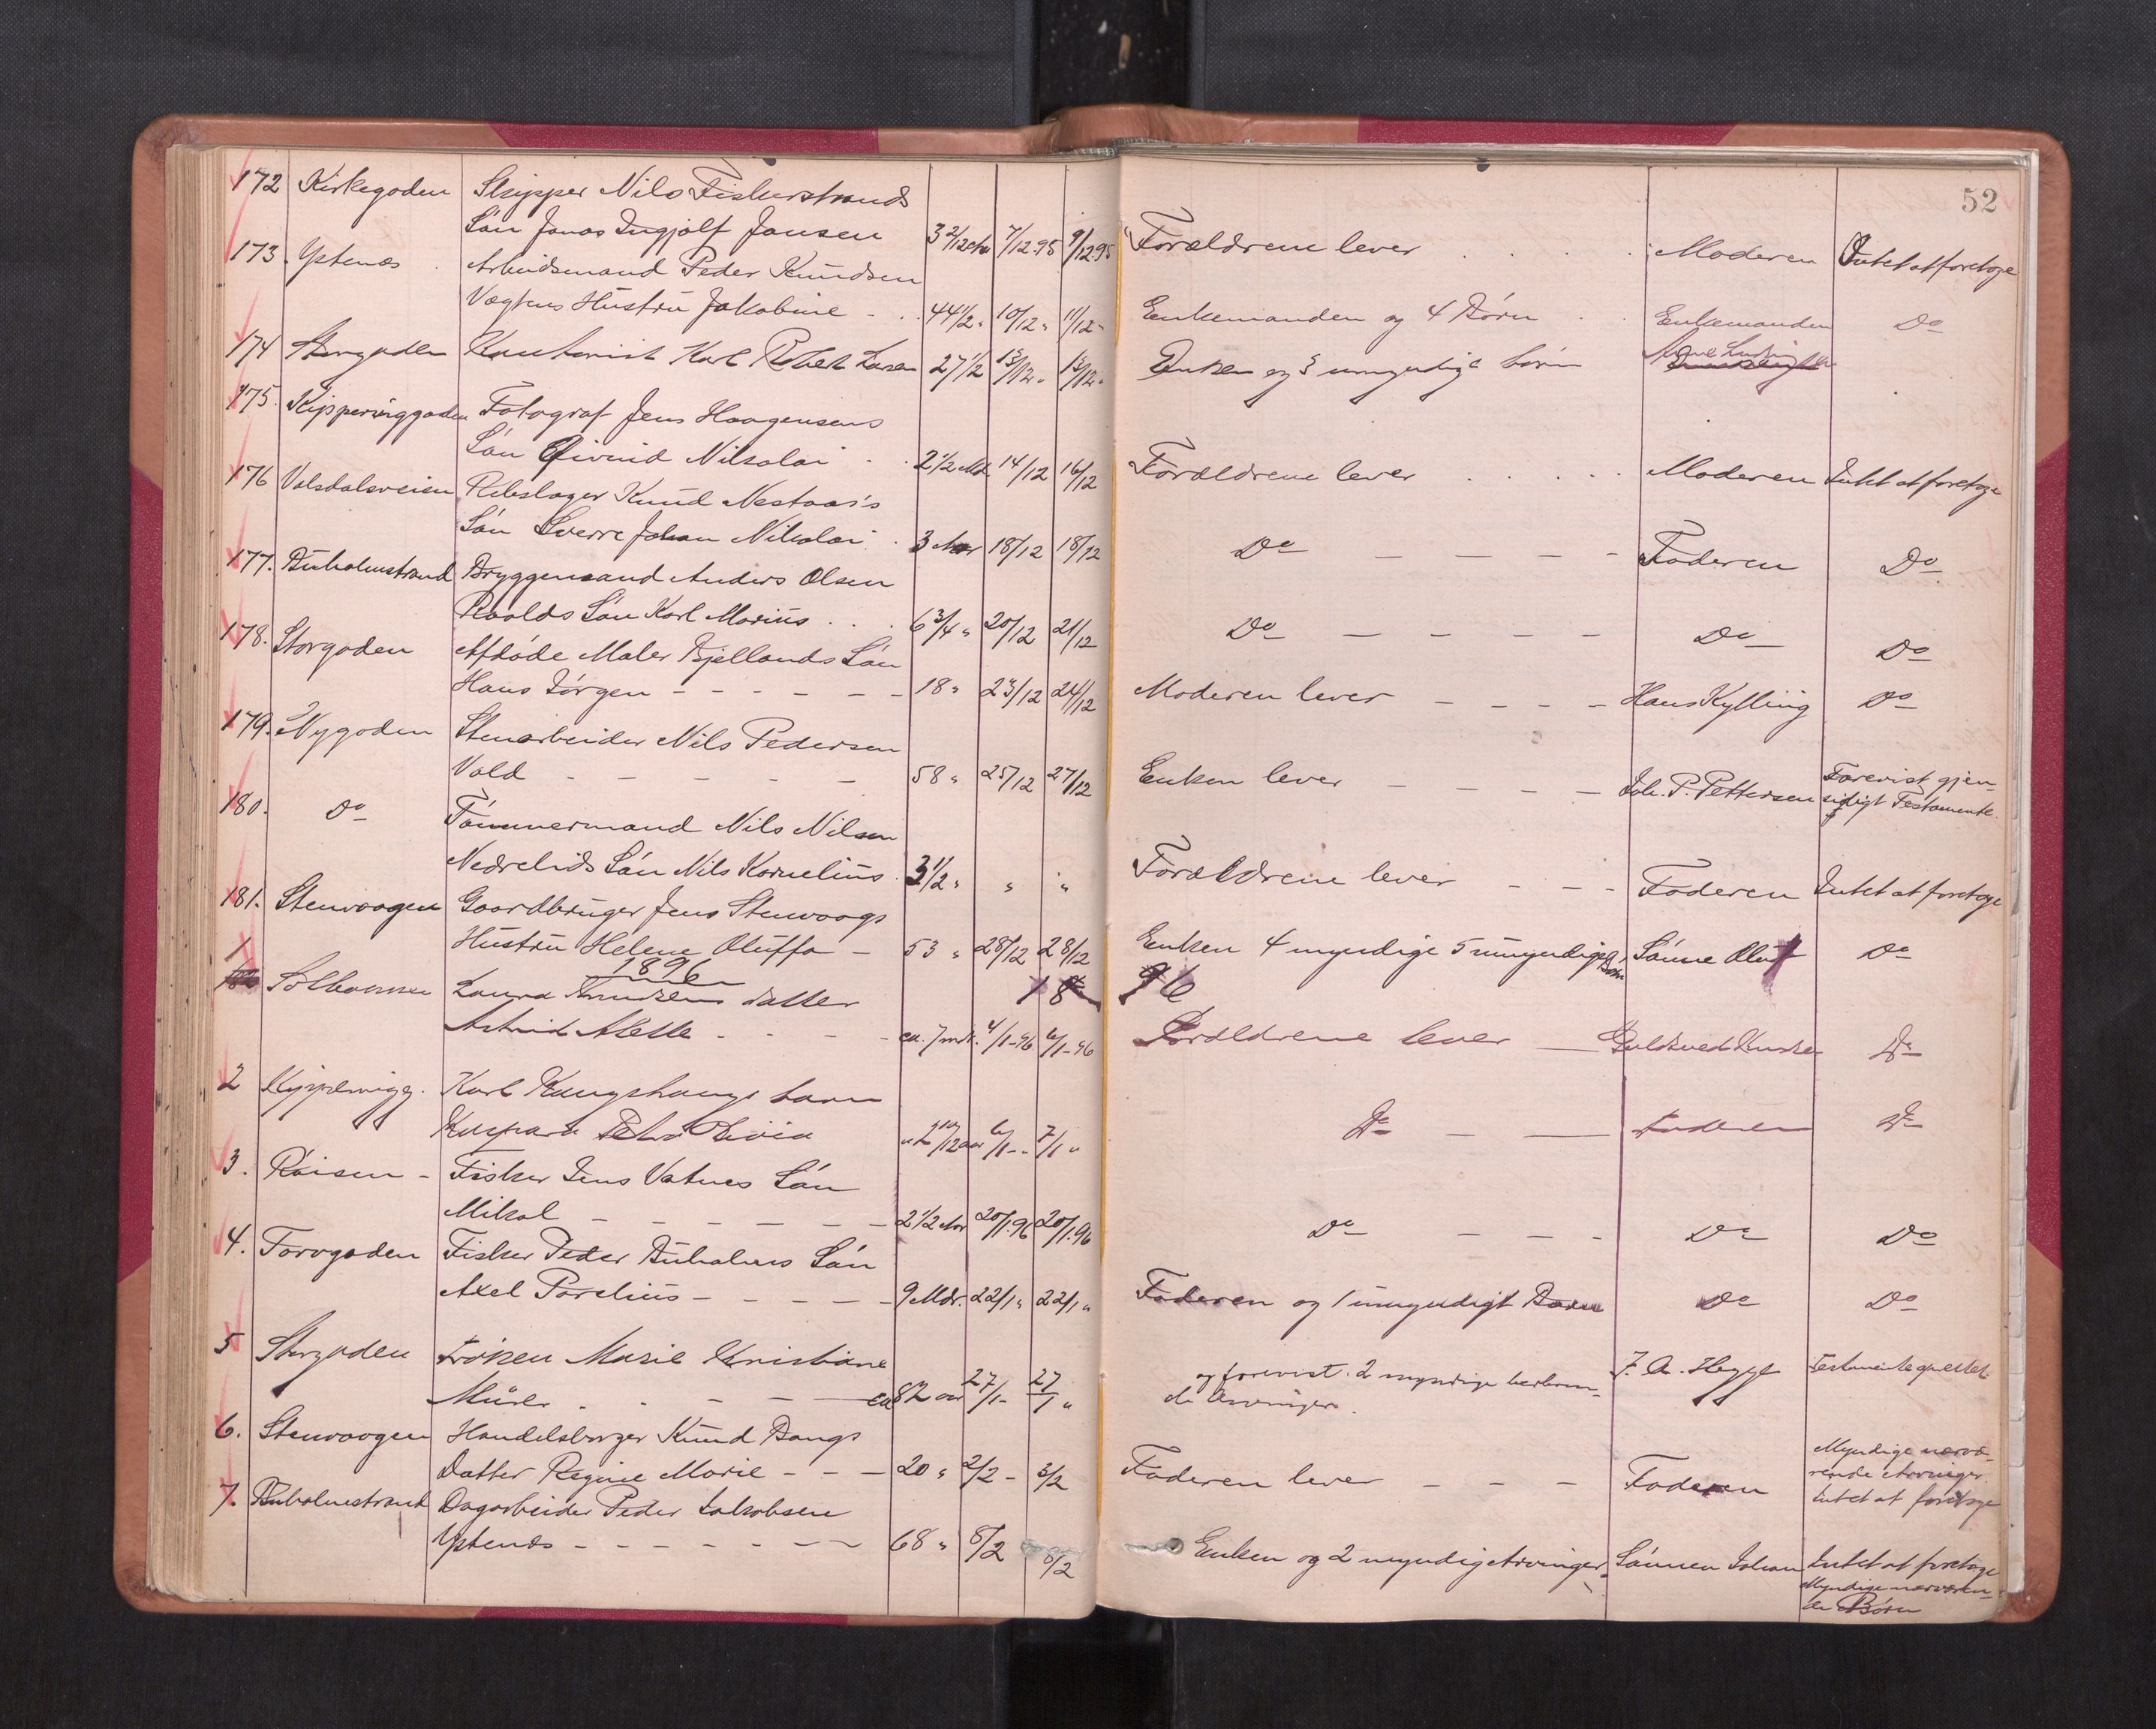 52
172 Kirkegaden Skipper Nils Fiskerstrands
Søn Jonas Ingjolf Jansen 3 2/12 Aar 7/12.95 9/12.95 Forældrene lever . . . . Moderen Intet at foretage
173. Ystenæs . Arbeidsmand Peder Knudsen
Vegsens Hustru Jakobine - . . 44 1/2 " 10/12 " 11/12 " Enkemanden og 4 Børn . . Enkemanden Do
174 Storgaden Karl Robert Larsen 27 1/2 13/12 " 13/12 " Enken og 3 umyndige børn
175. Skipperviggaden Fotograf Jens Haagensens
Søn Eivind Nikolai . . 2 1/2 Md. 14/12 16/12 Forældrene lever . . . . . Moderen Intet at foretage
176 Volsdalsveien Rebslager Knud Nestaas's
Søn Sverre Johan Nikolai . 3 Aar 18/12 18/12 Do — — — — Faderen Do
177. Buholmstrand Bryggemand Anders Olsen
Roalds Søn Karl Marius . . . 6 3/4 " 20/12 21/12 Do — — — — — Do Do
178. Storgaden Afdøde Maler Bjellands Søn
Hans Jørgen - - - - - - 18 " 23/12 24/12 Moderen lever - - - - Hans Kylling Do
179. Nygaden Stenarbeider Nils Pedersen
Vold - - - - - 58 " 25/12 27/12 Enken lever - - - - Joh. P. Pettersen Forevist gjen-
sidigt Testamente
180. Do Tømmermand Nils Nilsen
Nedrelids Søn Nils Kornelius . 3 1/2 " " " Forældrene lever - - - Faderen Intet at foretage
181. Stenvaagen Gaardbruger Jens Stenvaags
Hustru Helene Oluffa - 53 " 28/12 28/12 Enken 4 myndige 5 umyndige Børn Sønne Oluf Do
1896
1 Laura Knudsens datter 18 96
Astrid Alette - - - - ca. 7 mdr. 4/1-96 6/1-96 Forældrene lever — Do
2 Skippervigg. Karl barn
Kaspara Petra 2 10/12 aar 6/1-" 7/1 " Do - — Faderen Do
3. Røisen - Fisker Jens Vatnes Søn
Mikal - - - - - - 2 1/2 Aar 20/1.96 20/1.96 Do - - - Do Do
4. Torvgaden Fisker Peder Buholms Søn
Axel Parelius - - - - - 9 Mdr. 22/1 " 22/1 " Faderen og 1 umyndigt Barn Do Do
5 Storgaden Frøken Marie Kristiane
Mürer . . - - — ca 82 aar 27/1- 27/1 " og forevist. 2 myndige herboen-
de Arvinger. J. A. Hegge Testamente oprettet
6. Stenvaagen Handelsborger Knud Bangs
Datter Regine Marie - - - 20 " 2/2 - 3/2 Faderen lever - - - Faderen Myndige nærvæ-
rende Arvinger.
Intet at foretage
7. Buholmstrand Dagarbeider Peder Jakobsen
Ystenæs - - - - - - - 68 " 8/2 8/2 Enken og 2 myndige Arvinger. Sønnen Johan Intet at foretage
Myndige nærværen-
de Børn